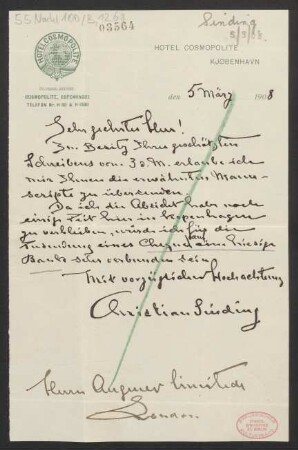 55 Nachl 100/B, 1268
03564
Sinding
5/3/08.
HOTEL COSMOPOLITE
HOTEL COSMOPOLITE
KJÖBENHAVN
COSMOPOLITE, COPENHAGUE
den 5 März 1908
Sehr geehrter Herr!
Im Besitz Ihres geschätzten
Schreibens vom 3. d. M. erlaube ich
mir Ihnen die erwähnten Manu-
scripte zu übersenden.
Da ich die Absicht habe noch
einige Zeit hier in Kopenhagen
zu verbleiben, würde ich für die
Zusendung eines Cheques auf eine hiesige
Bank sehr verbunden sein.
Mit vorzüglicher Hochachtung
Christian Sinding
Herrn Augener Limited
London